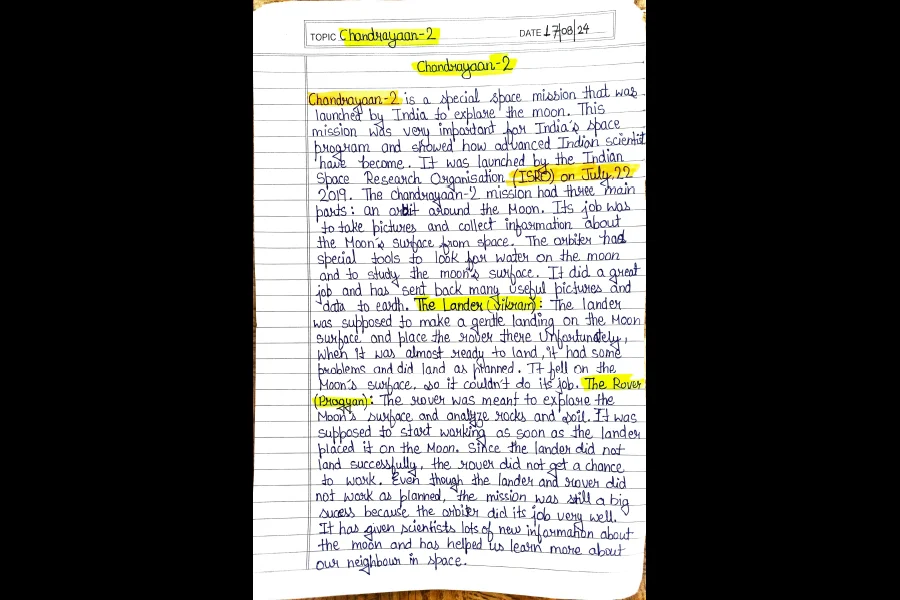 TOPIC Chandrayaan-2 DATE 17/08/24
Chandrayaan-2
Chandrayaan-2 is a special space mission that was
launched by India to explore the moon. This
mission was very important for India's space
program and showed how advanced Indian scientist
have become. It was launched by the Indian
Space Research Organisation (ISRO) on July, 22
2019. The chandrayaan-2 mission had three main
parts: an orbit around the Moon. Its job was
to take pictures and collect information about
the Moon's surface from space. The orbiter had
special tools to look for water on the moon
and to study the moon's surface. It did a great
job and has sent back many useful pictures and
data to earth. The Lander (Vikram): The lander
was supposed to make a gentle landing on the Moon
surface and place the rover there Unfortunately,
when it was almost ready to land, it had some
problems and did land as planned. It fell on the
Moon's surface. so it couldn't do its job. The Rover
(Pragyan): The rover was meant to explore the
Moon's surface and analyze rocks and soil. It was
supposed to start working as soon as the lander
placed it on the Moon. Since the lander did not
land successfully, the rover did not get a chance
to work. Even though the lander and rover did
not work as planned, the mission was still a big
sucess because the orbiter did its job very well.
It has given scientists lots of new information about
the moon and has helped us learn more about
our neighbour in space.